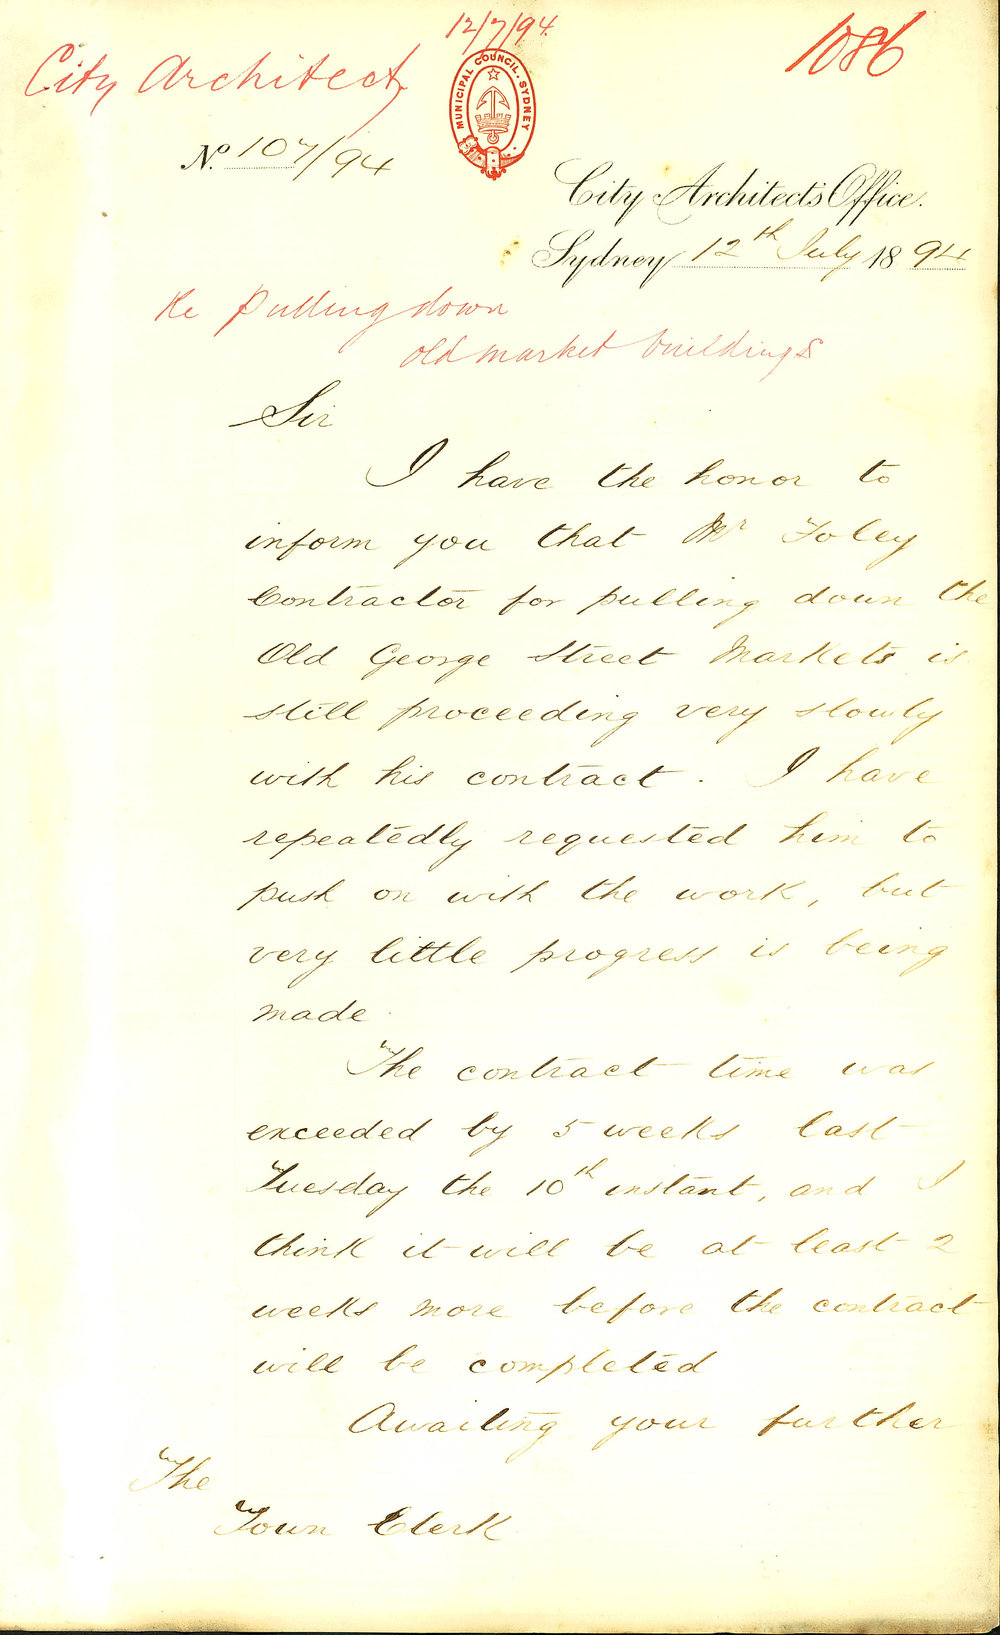 12/7/94
1086
City Architect
MUNICIPAL COUNCIL. SYDNEY
No. 107/94
City Architect's Office.
Sydney 12th July 1894
Re Pulling down
old market buildings
Sir
I have the honor to
inform you that Mr Foley
Contractor for pulling down the
Old George Street Markets is
still proceeding very slowly
with his contract. I have
repeatedly requested him to
push on with the work, but
very little progress is being
made
The contract time was
exceeded by 5 weeks last
Tuesday the 10th instant, and I
think it will be at least 2
weeks more before the contract
will be completed
Awaiting your further
The
Town Clerk